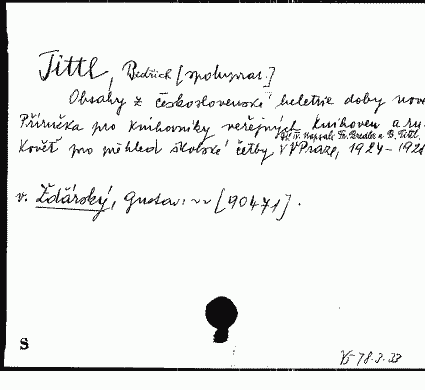 Tittl, Bedřich [spoluprac.]
Obsahy z československé beletrie doby nové
Příručka pro knihovníky veřejných knihoven a ru-
Díl IV. napsali Fr. Bredler a B. Tittl.
kověť pro přehled školské četby V Praze, 1924-192
v. Žďárský, Gustav: ~~ [90471].
S
78.3.33